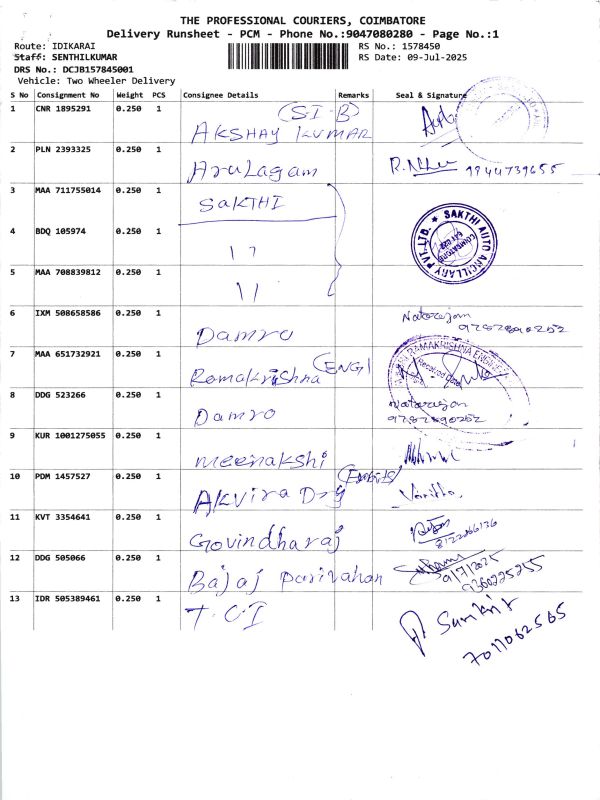 THE PROFESSIONAL COURIERS, COIMBATORE
Delivery Runsheet - PCM - Phone No.:9047080280 - Page No.:1
Route: IDIKARAI
RS No.: 1578450
Staff: SENTHILKUMAR
RS Date: 09-Jul-2025
DRS No.: DCJB157845001
Vehicle: Two Wheeler Delivery
S No Consignment No Weight PCS Consignee Details Remarks Seal & Signature
1 CNR 1895291 0.250 1 AKSHAY KUMAR (SI-B)
2 PLN 2393325 0.250 1 Arulagam 9944739655
3 MAA 711755014 0.250 1 SAKTHI
4 BDQ 105974 0.250 1 ''
SAKTHI AUTO ANCILLARY PVT. LTD. COIMBATORE
5 MAA 708839812 0.250 1 ''
6 IXM 508658586 0.250 1 Damro Natarajan
9787890252
7 MAA 651732921 0.250 1 Ramakrishna (ENG)
RAMAKRISHNA
8 DDG 523266 0.250 1 Damro Natarajan
9787890252
9 KUR 1001275055 0.250 1 meenakshi
10 PDM 1457527 0.250 1 AKvira
11 KVT 3354641 0.250 1 Govindharaj
12 DDG 505066 0.250 1 Bajaj Parivahan
9/7/2025
9360225255
13 IDR 505389461 0.250 1 T.C.I
7011062565